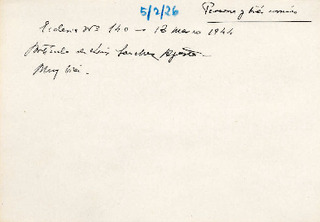 5/2/26
Persona y bien común
Ecclesia nº 140 - 18 marzo 1944
Artículo de Luis Sanchez Agesta -
Muy bien.